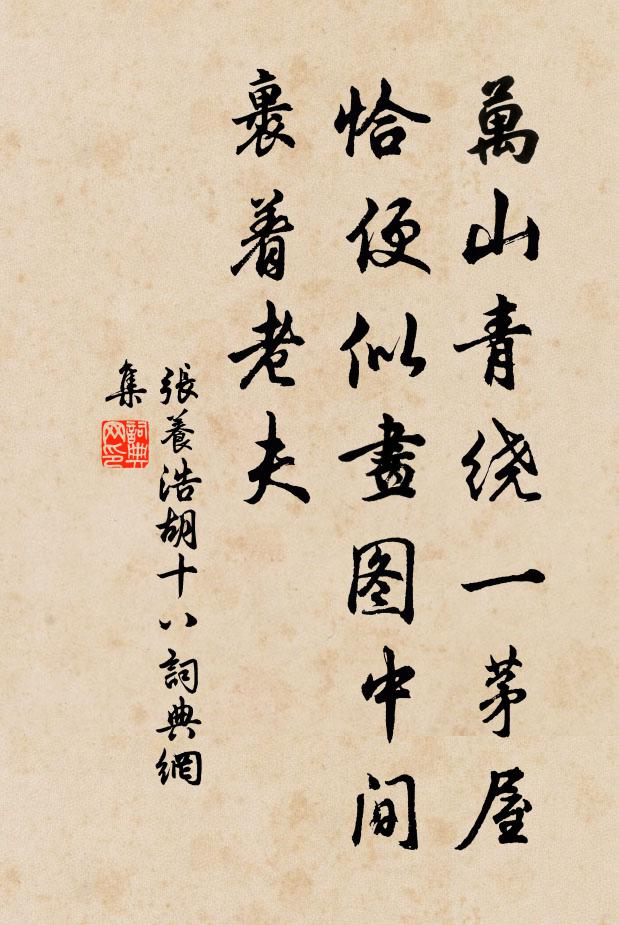 萬山青绕一茅屋
恰便似畫图中间
裹着老夫
張養浩胡十八詞典網
集
詞典
网印